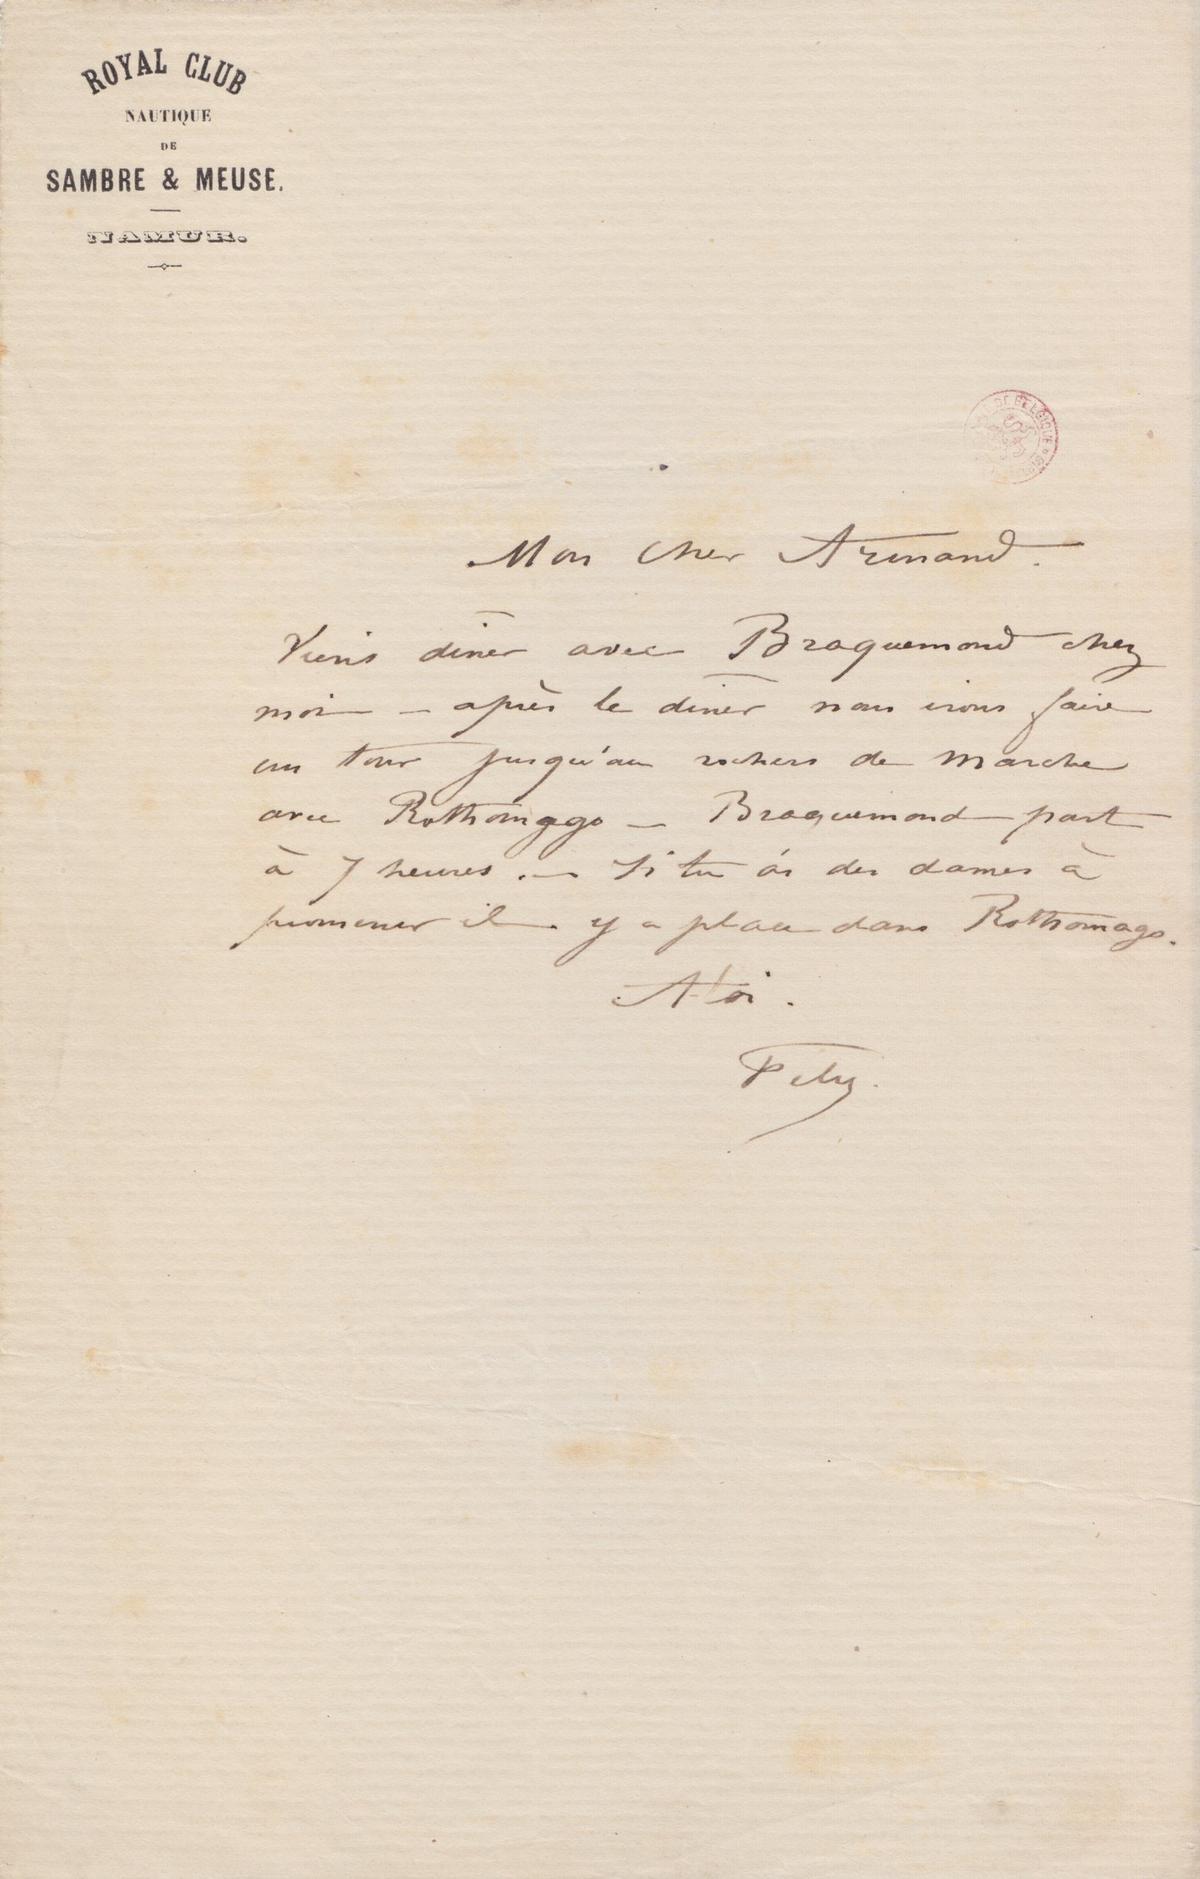 ROYAL CLUB
NAUTIQUE
DE
SAMBRE & MEUSE.
NAMUR.
DE BELGIQUE
Mon cher Armand.
Viens dîner avec Braquemond chez
moi — après le dîner nous irons faire
un tour jusqu'au rochers de Marche
avec Rothomago — Braquemond part
à 7 heures. — Si tu as des dames à
promener il y a place dans Rothomago.
A toi.
Fély.